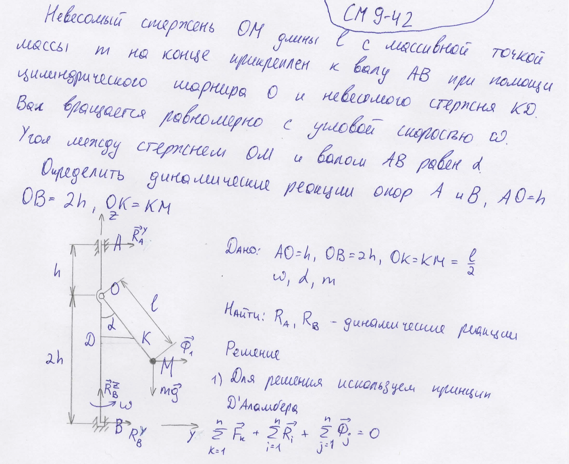 СМ 9-42
Невесомый стержень ОМ длины l с массивной точкой
массы m на конце прикреплен к валу АВ при помощи
цилиндрического шарнира О и невесомого стержня KD.
Вал вращается равномерно с угловой скоростью ω.
Угол между стержнем ОМ и валом АВ равен α.
Определить динамические реакции опор А и В, AO=h
OB = 2h, OK = KM
z
A
R_A^y
h
O
l
α
D
K
Φ⃗_1
M
2h
R⃗_B^z
mg⃗
ω
B
R_B^y
y
Дано: AO=h, OB=2h, OK=KM = l/2
ω, α, m
Найти: R_A, R_B - динамические реакции
Решение
1) Для решения используем принцип
Д'Аламбера
∑_{k=1}^{n} F⃗_k + ∑_{i=1}^{n} R⃗_i + ∑_{j=1}^{n} Φ⃗_j = 0